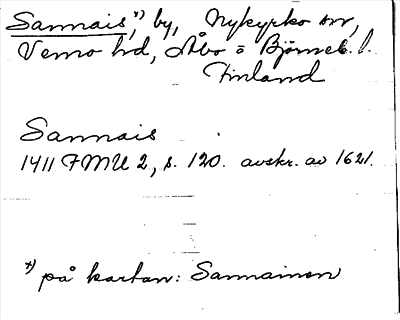 Sannais,*) by, Nykyrko snr,
Vemo hd, Åbo o Björneb. l.
Finland
Sannais
1411 FMU 2, s. 120. avskr. av 1621.
*) på kartan: Sannainen